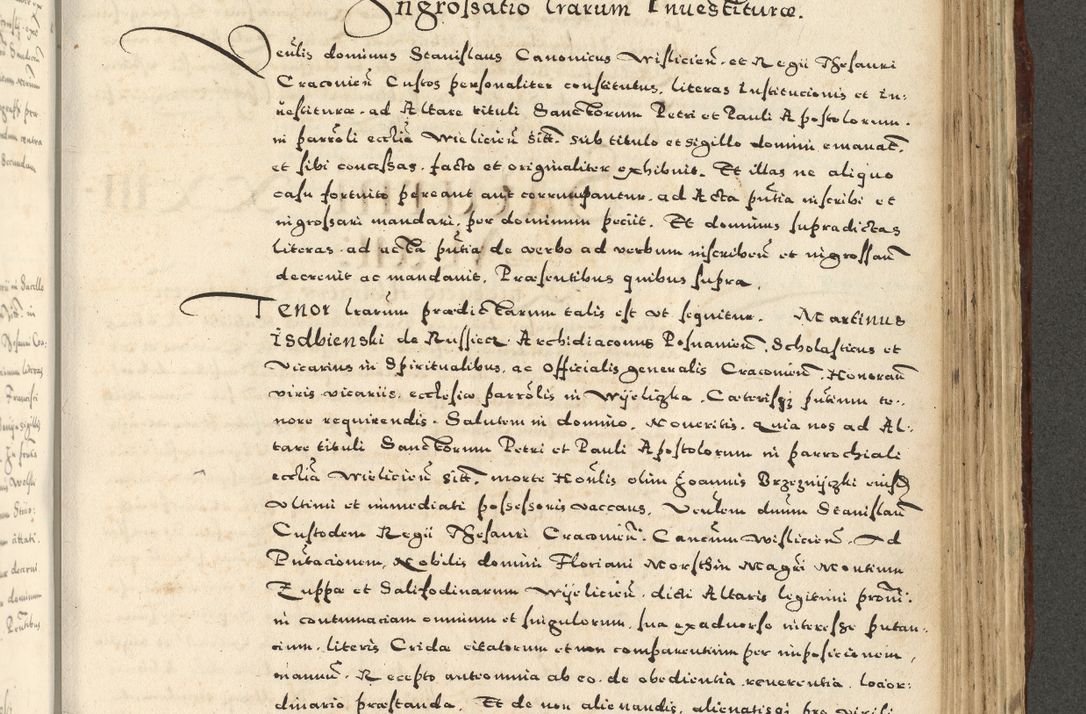 Ingrossatio Lrarum Inuestituræ.
Venlis dominus Stanislaus Canonicus Wislicieñ. et Regii Thesauri
Cracovieñ Custos personaliter constitutus, literas Institucionis et in-
uestituræ. ad Altare tituli Sanctorum Petri et Pauli Apostolorum.
in parroli eccliã Wielicieñ sitt. sub titulo et sigillo domini emanat.
et sibi concessas. facto et originaliter exhibuit. Et illas ne aliquo
casu fortuito pereant aut corrumpantur. ad Acta pñtia inscribi et
ingrossari mandari. per dominum peciit. Et dominus supradictas
literas. ad acta pñtia de verbo ad verbum inscribeñ et ingrossañ
decreuit ac mandauit. Præsentibus quibus supra.
Tenor Lrarum prædictarum talis est vt sequitur. Martinus
Isdbienski de Russiecz Archidiaconus Posnanieñ, Scholasticus et
vicarius in Spiritualibus, ac Officialis generalis Cracovieñ. Honorañ
viris vicariis, ecclesiæ parrõlis in Wyeliczka. Cæterisqz pñtium te-
nore requirendis. Salutem in domino. Noueritis. Quia nos ad Al-
tare tituli Sanctorum Petri et Pauli Apostolorum in parrochiali
eccliã Wielicieñ sitt. morte Honlis olim Joannis Brzeznyczki eiusd
vltimi et immediati possessoris vaccans, Venlem dnum Stanislaũ
Custodem Regii Thesauri Cracovieñ. Cancum Wislicieñ. Ad
Pñtacionem, Nobilis domini Floriani Morsthin Magri Montium
Zuppæ et Salifodinarum Wyelicieñ. dicti Altaris legitimi proñi.
in contumaciam omnium et singulorum, sua exaduerso interesse putan-
cium. literis Cridæ citatorum et non comparentium per imposicionem,
manuũ. Recepto autem omnia ab eo. de obedientia reuerentia. loco or-
dinario præstanda. Et de non alienandis, alienatisqz pro virili